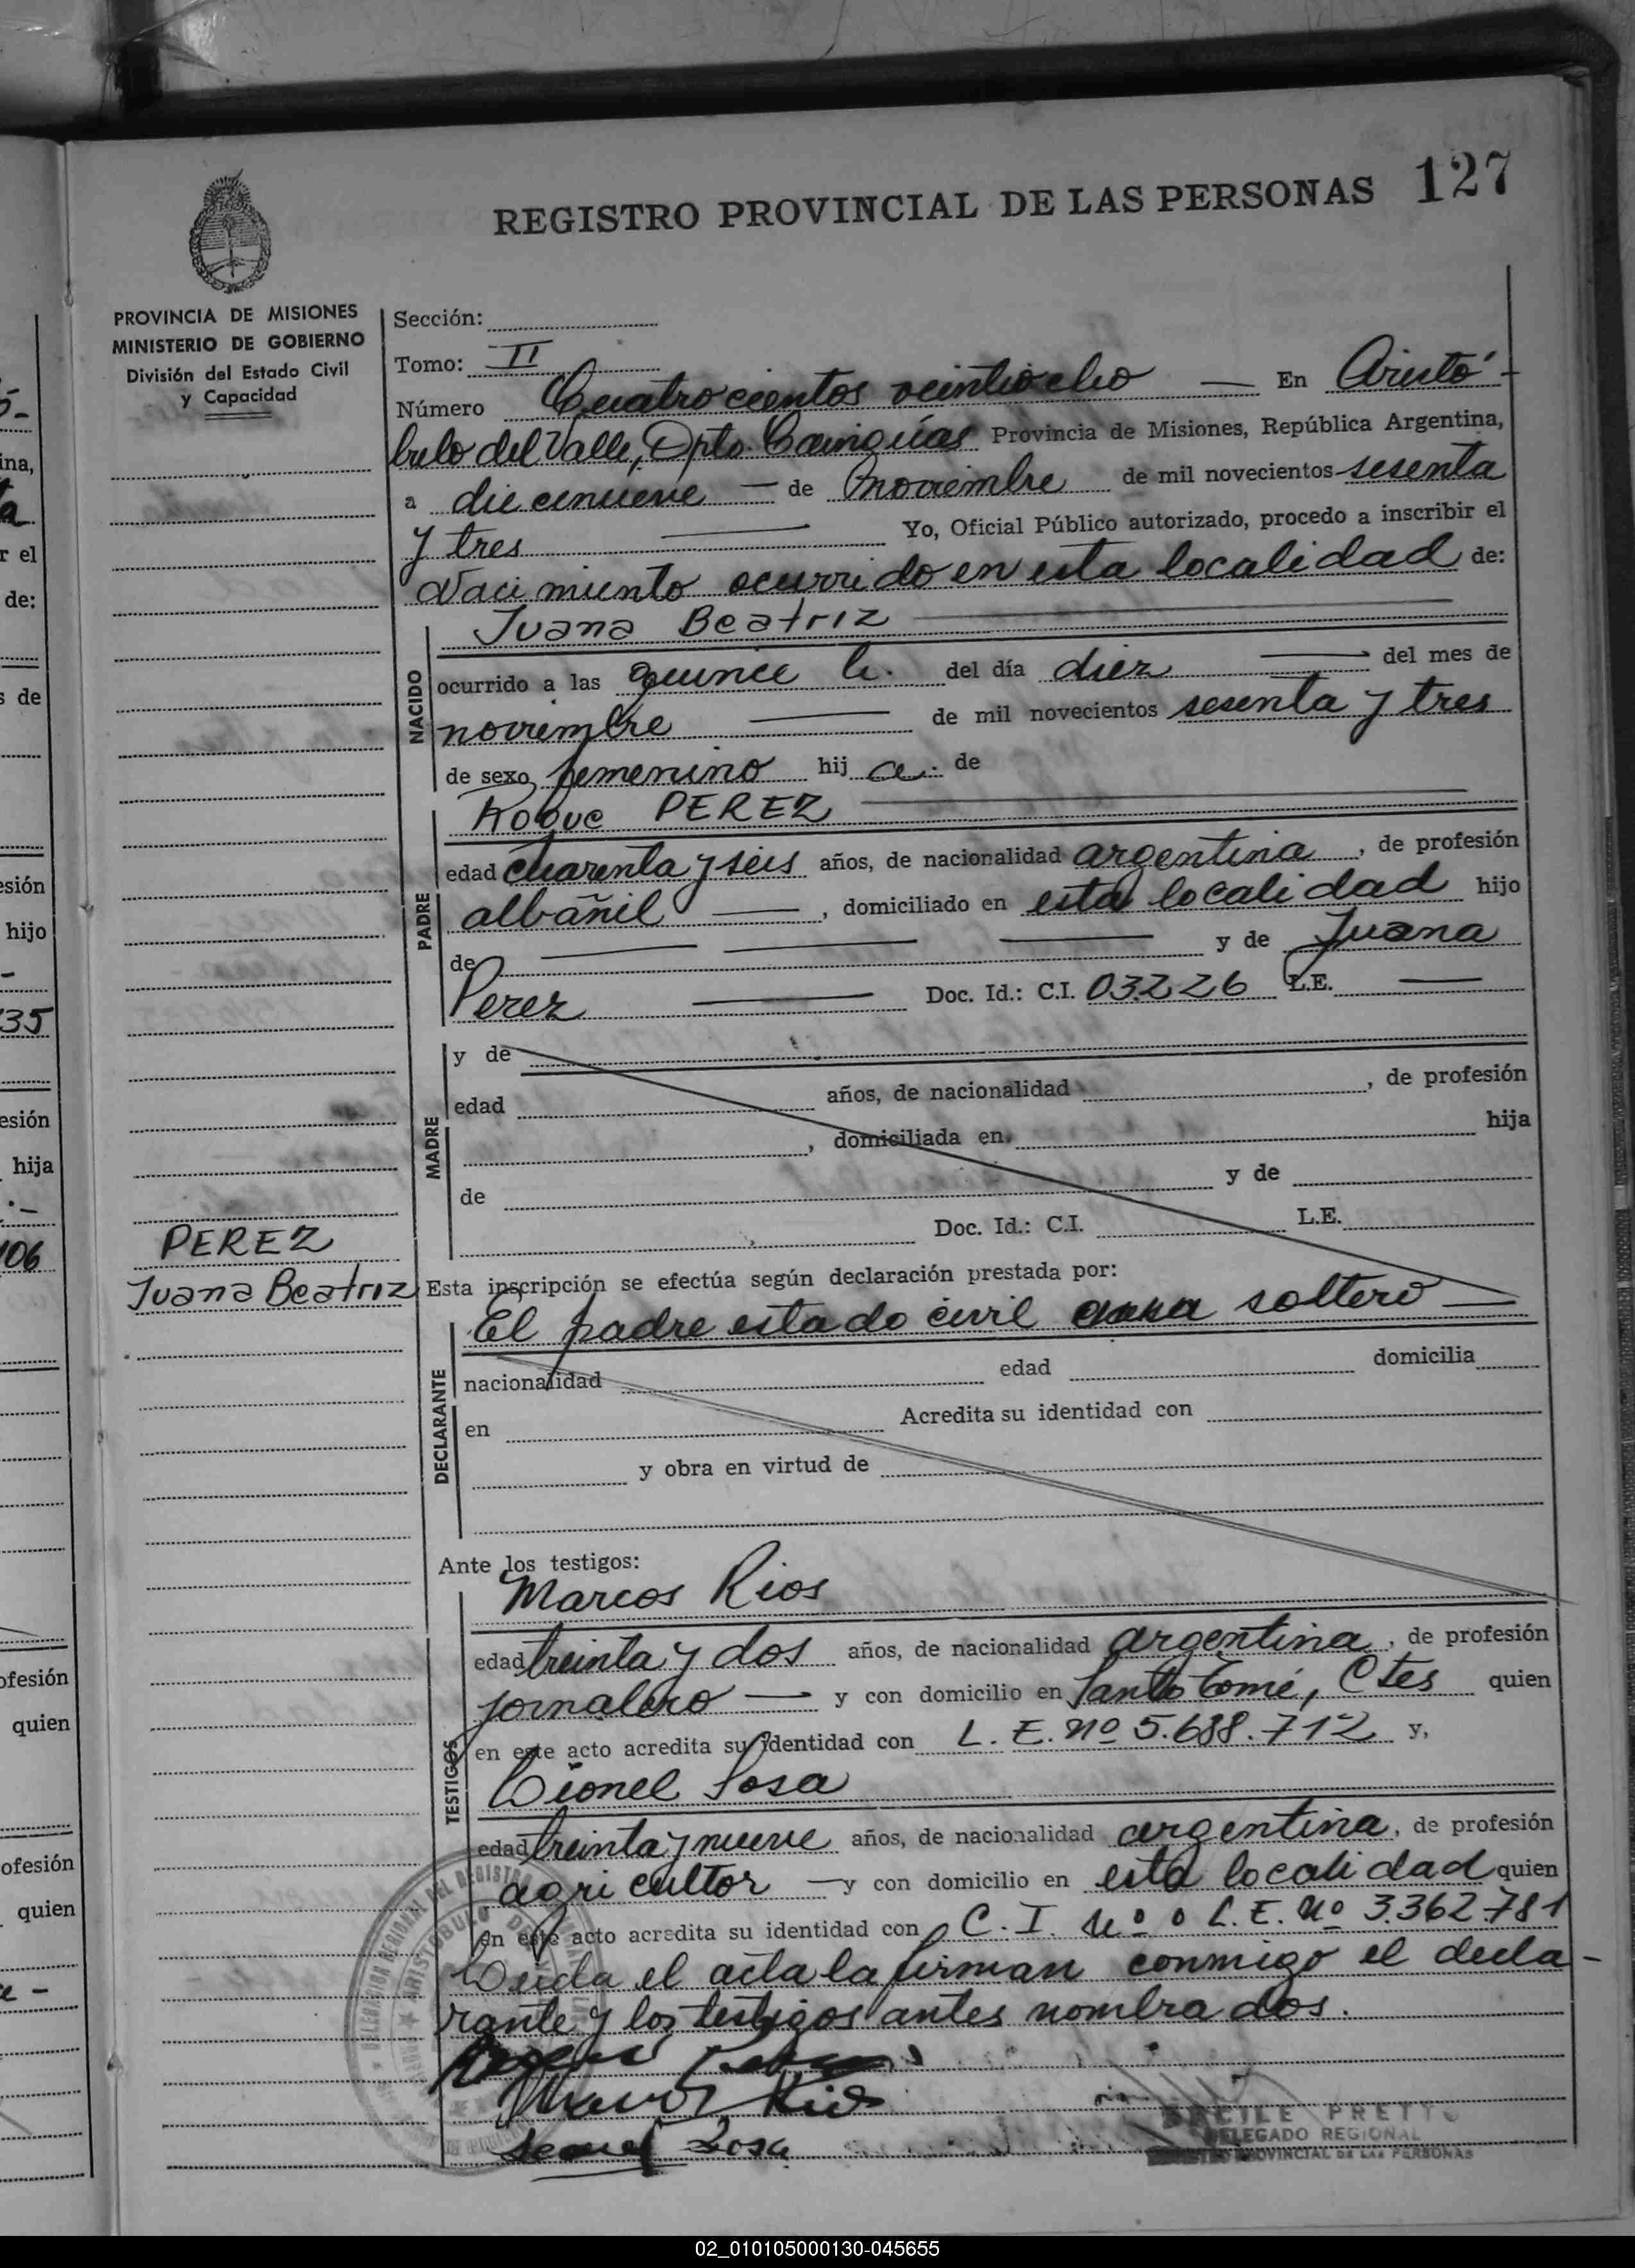 REGISTRO PROVINCIAL DE LAS PERSONAS 127
PROVINCIA DE MISIONES
MINISTERIO DE GOBIERNO
División del Estado Civil
y Capacidad
Sección:
Tomo: II
Número Cuatrocientos veintiocho — En Aristó-
bulo del Valle, Dpto. Cainguás Provincia de Misiones, República Argentina,
a diecinueve — de noviembre de mil novecientos sesenta
y tres — Yo, Oficial Público autorizado, procedo a inscribir el
Nacimiento ocurrido en esta localidad de:
NACIDO
Juana Beatriz
ocurrido a las quince h. del día diez — del mes de
noviembre — de mil novecientos sesenta y tres
de sexo femenino hij a. de
PADRE
Roque PEREZ
edad cuarenta y seis años, de nacionalidad argentina, de profesión
albañil —, domiciliado en esta localidad hijo
de — — — y de Juana
Perez — Doc. Id.: C.I. 03226 L.E. —
MADRE
y de
edad años, de nacionalidad , de profesión
, domiciliada en hija
de y de
Doc. Id.: C.I. L.E.
PEREZ
Juana Beatriz
Esta inscripción se efectúa según declaración prestada por:
DECLARANTE
El padre estado civil soltero —
nacionalidad edad domicilia
en Acredita su identidad con
y obra en virtud de
Ante los testigos:
TESTIGOS
Marcos Rios
edad treinta y dos años, de nacionalidad argentina, de profesión
jornalero — y con domicilio en Santo Tomé, Ctes quien
en este acto acredita su identidad con L. E. Nº 5.688.712 y,
Lionel Sosa
edad treinta y nueve años, de nacionalidad argentina, de profesión
agricultor — y con domicilio en esta localidad quien
en este acto acredita su identidad con C. I. Nº o L. E. Nº 3.362.781
Leida el acta la firman conmigo el decla-
rante y los testigos antes nombrados.
Marcos Rios
Leonel Sosa
PRETTO
DELEGADO REGIONAL
REGISTRO PROVINCIAL DE LAS PERSONAS
02_010105000130-045655